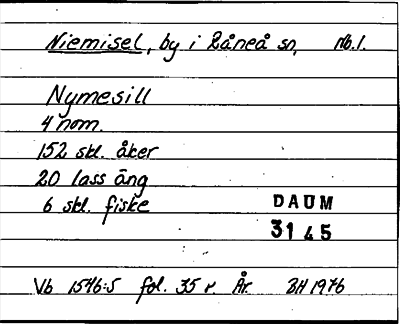 Niemisel, by i Råneå sn, Nb.l.
Nymesill
4 nom.
152 skl. åker
20 lass äng
6 skl. fiske
DAUM
3145
Vb 1546:5 fol. 35 r. År. BH 1976